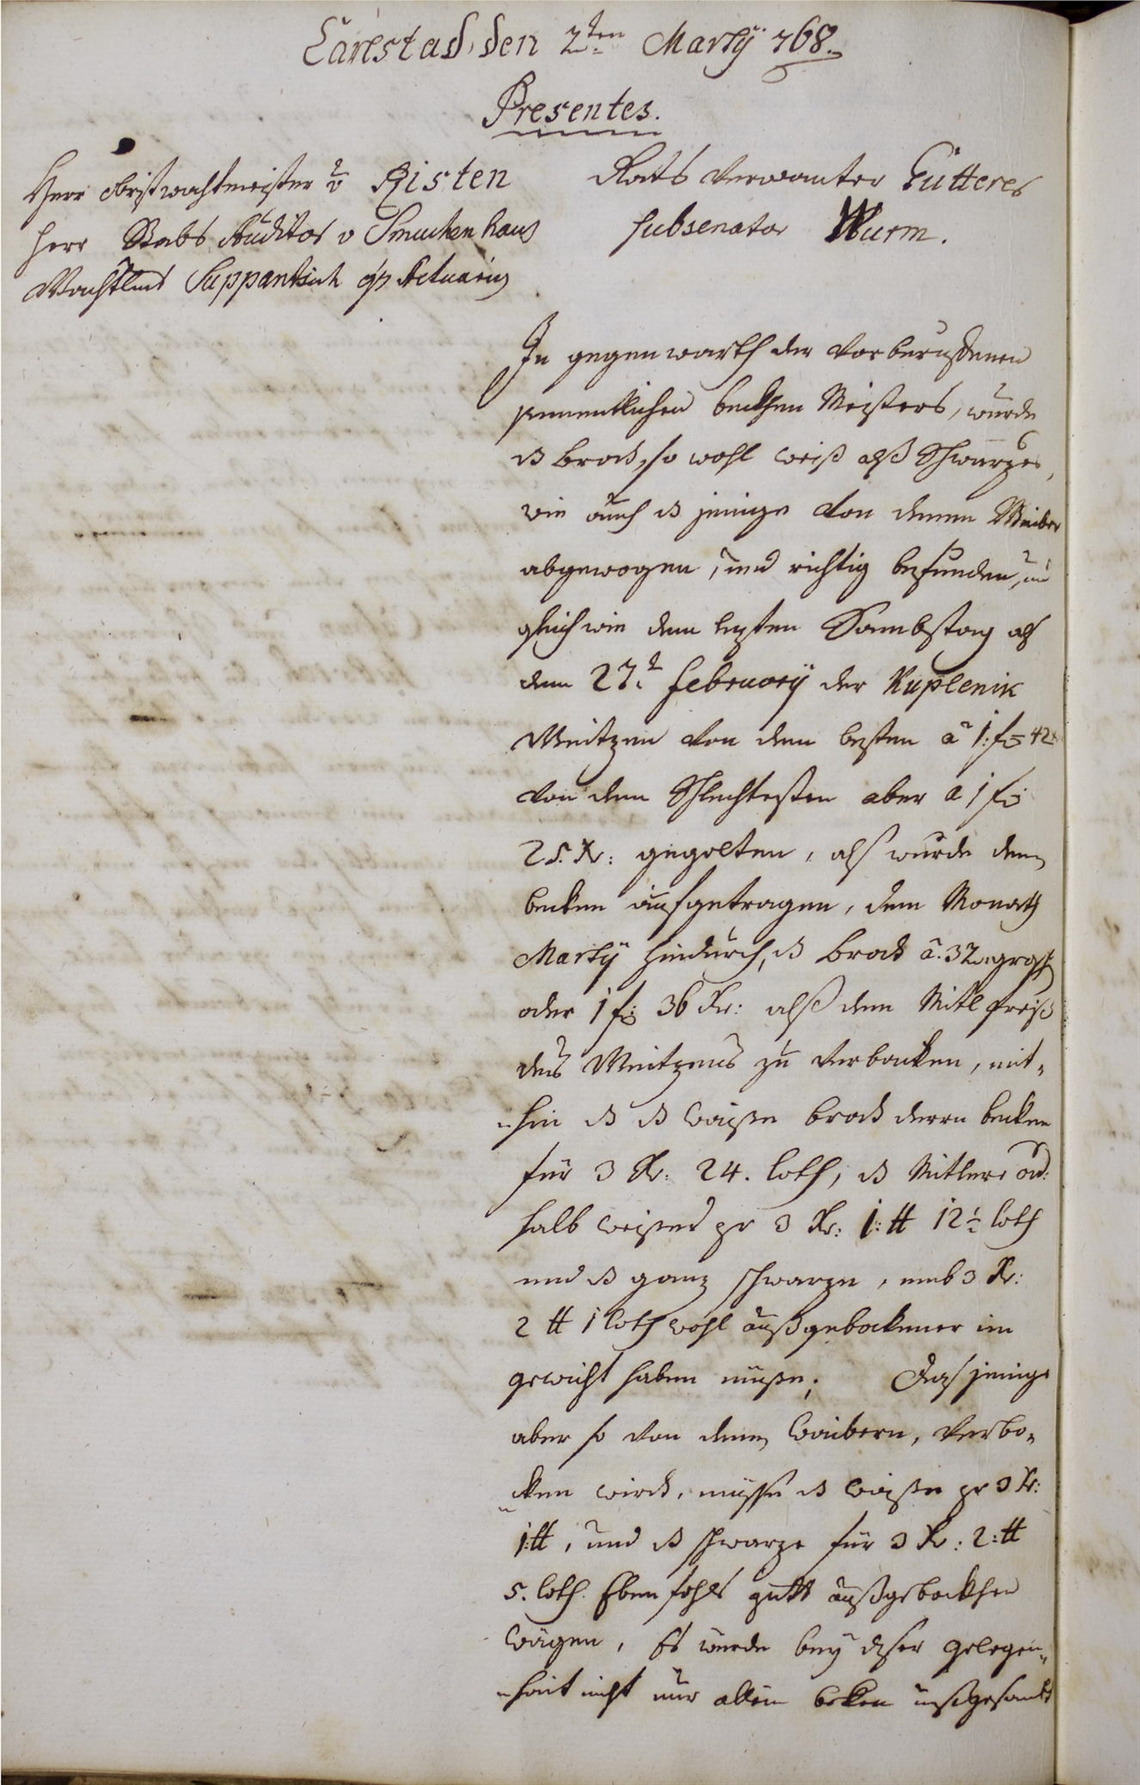 Carlstad, den 2ten Martÿ 768.
Presentes.
Herr obristwachtmeister v Risten
Herr Stabs Auditor v Smuckenhaus
Wachtmst Suppantsich qp Actuarius
Rats Verwanter Gutteres
Subsenator Wurm.
In gegenwarth der vorberuffenen
sammentlichen becken Meisters, wurde
ds brod, so wohl weiß alß Schwarzes,
wie auch ds jenige von denen Weiber
abgewogen, und richtig befunden, und
gleich wie dem lezten Sambstag alß
dem 27t February der Kuplenik
Weitzen von dem besten â 1: f 42
von dem Schlechtesten aber a 1 f
25 Xr: gegolten, alß wurde denen
becken aufgetragen, dem Monath
Martÿ hindurch, ds brod â. 32 grosch
oder 1 f 36 Xr: alß dem Mitl preiß
des Weitzens zu verbacken, mit-
-hin ds ds weiße brod deren becken
für 3 Xr: 24. loth, ds Mitlere od:
halb weißes pr 3 Xr: 1: ℔ 12½ loth
und ds ganz schwarze, umb 3 Xr:
2 ℔ 1 loth wohl außgebackener im
gewicht haben müße; das jenige
aber so von denen Weibern, verba-
cken wird, müsse ds weiße pr 3 Xr:
1: ℔, und ds schwarze für 3 Xr: 2: ℔
5. loth. Eben fahls gutt außgebackhen
wägen, Es wurde beÿ diser gelegen-
-heit nicht nur allein becken insgesambt